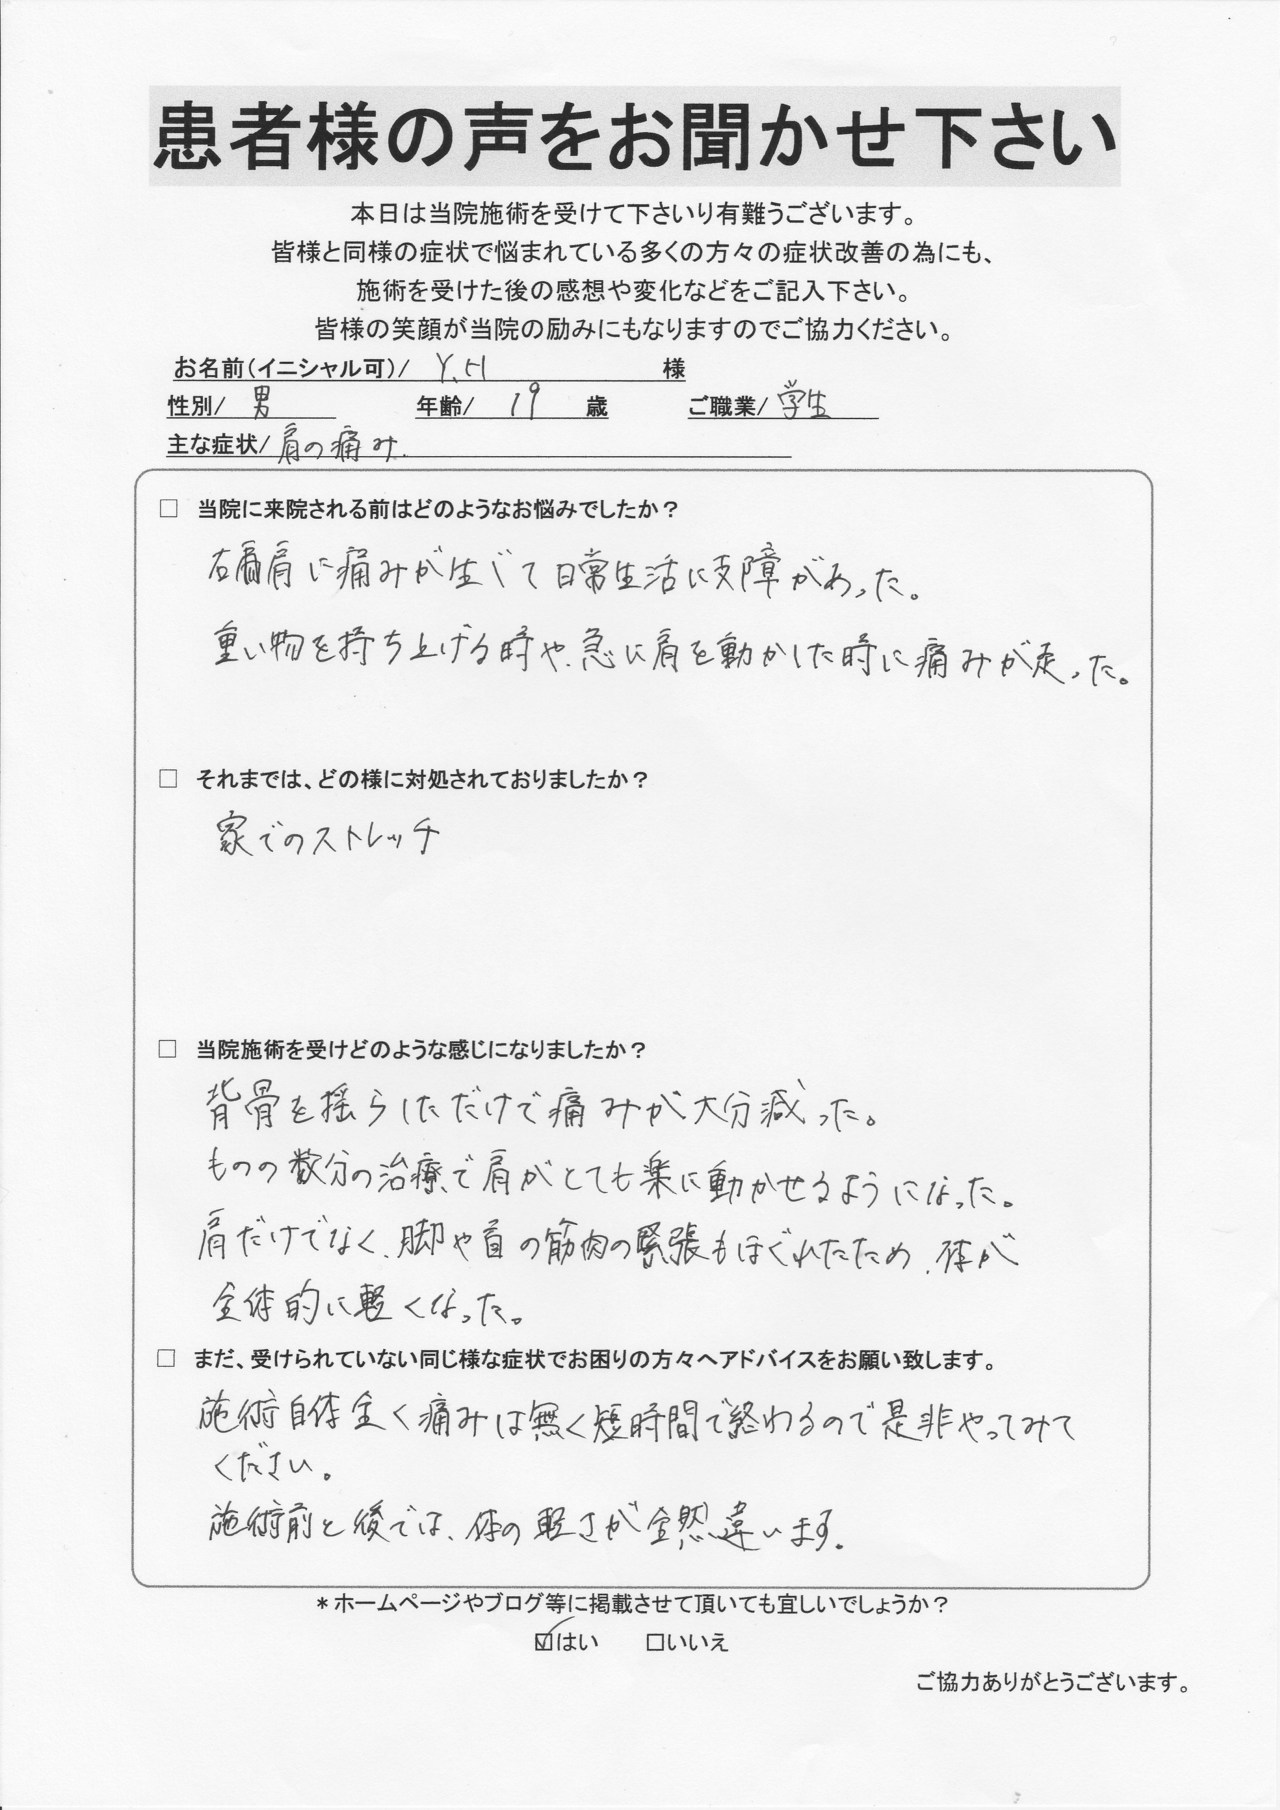 患者様の声をお聞かせ下さい
本日は当院施術を受けて下さいり有難うございます。
皆様と同様の症状で悩まれている多くの方々の症状改善の為にも、
施術を受けた後の感想や変化などをご記入下さい。
皆様の笑顔が当院の励みにもなりますのでご協力ください。
お名前(イニシャル可)/ Y.H 様
性別/ 男 年齢/ 19 歳 ご職業/ 学生
主な症状/ 肩の痛み.
□ 当院に来院される前はどのようなお悩みでしたか？
右肩に痛みが生じて日常生活に支障があった。
重い物を持ち上げる時や、急に肩を動かした時に痛みが走った。
□ それまでは、どの様に対処されておりましたか？
家でのストレッチ
□ 当院施術を受けどのような感じになりましたか？
背骨を揺らしただけで痛みが大分減った。
ものの数分の治療で肩がとても楽に動かせるようになった。
肩だけでなく、脚や首の筋肉の緊張もほぐれたため、体が
全体的に軽くなった。
□ まだ、受けられていない同じ様な症状でお困りの方々へアドバイスをお願い致します。
施術自体全く痛みは無く短時間で終わるので是非やってみて
ください。
施術前と後では、体の軽さが全然違います.
＊ホームページやブログ等に掲載させて頂いても宜しいでしょうか？
☑はい □いいえ
ご協力ありがとうございます。